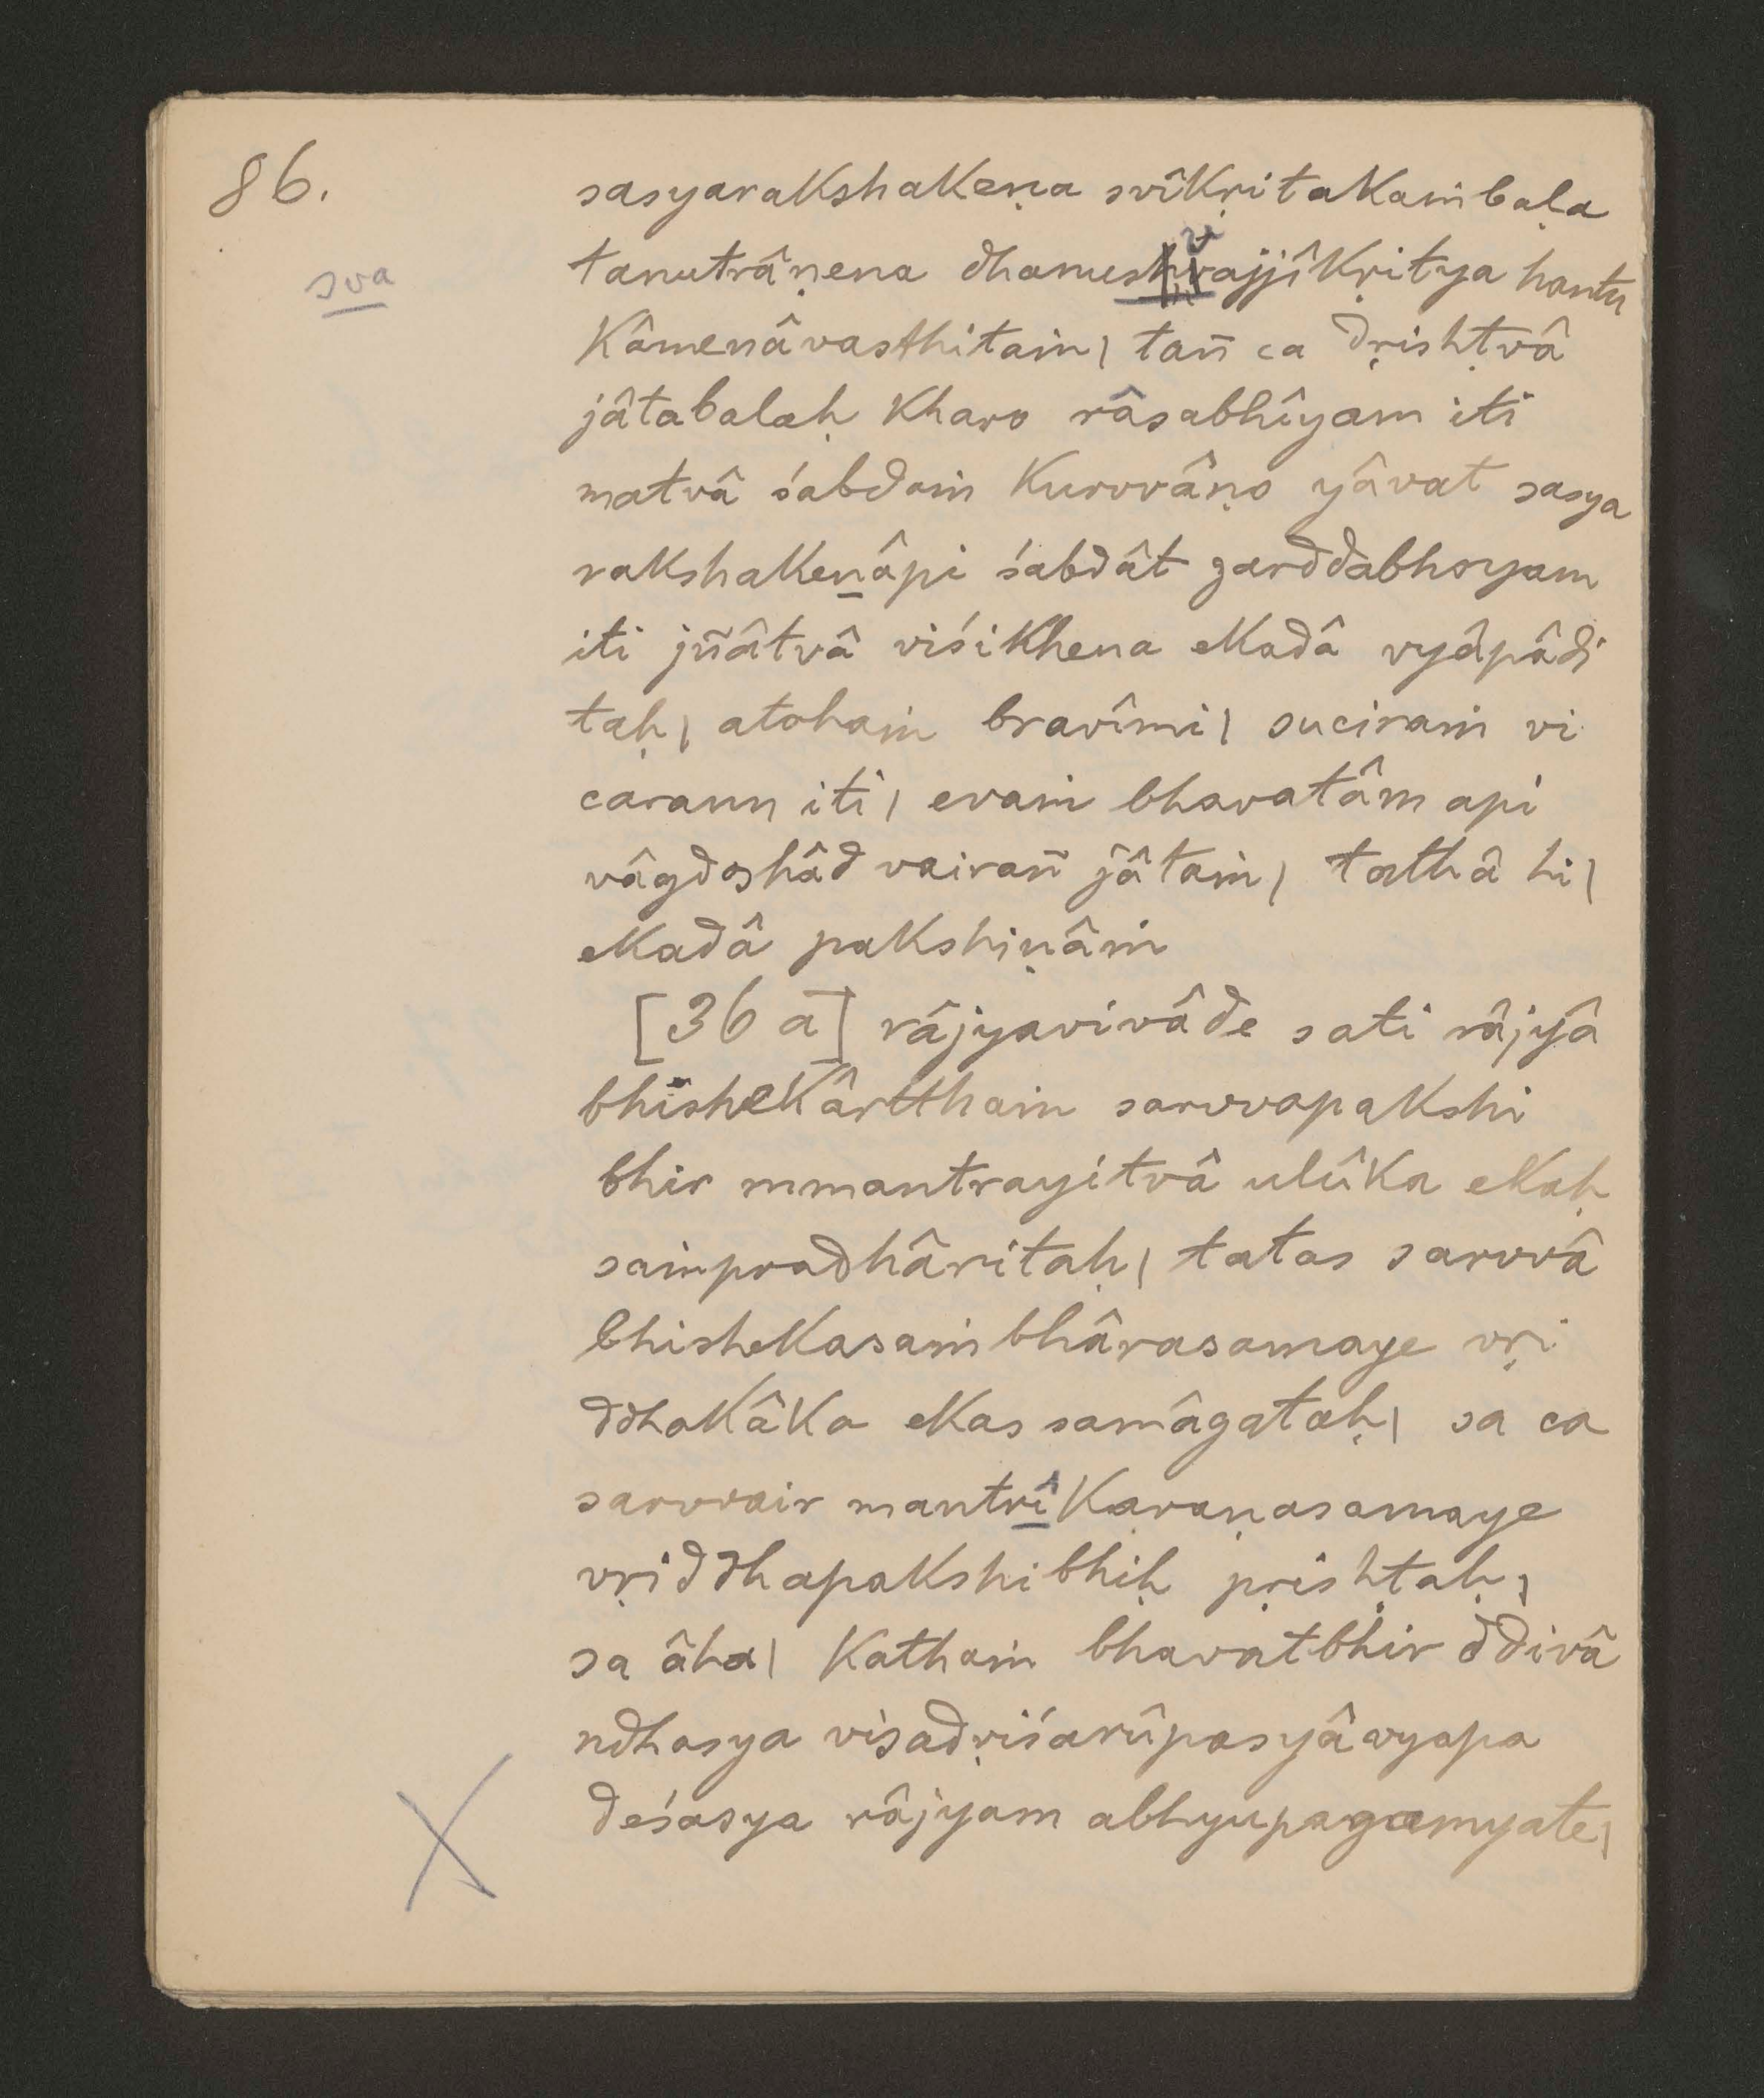 86.
sasyarakshakeṇa svîkṛitakaṁbaḷa
tanutrâṇena dhanushvajjîkṛitya hantu
sva
kâmenâvasthitaṁ| tañ ca dṛishṭvâ
jâtabalaḥ kharo râsabhîyam iti
matvâ śabdaṁ kurvvâṇo yâvat sasya
rakshakenâpi śabdât garddabhoyam
iti jñâtvâ viśikhena ekadâ vyâpâdi
taḥ| atohaṁ bravîmi| suciraṁ vi
carann iti| evaṁ bhavatâm api
vâgdoshâd vairañ jâtaṁ| tathâ hi|
ekadâ pakshiṇâṁ
[36 a] râjyavivâde sati râjyâ
bhishekârtthaṁ sarvvapakshi
bhir mmantrayitvâ ulûka ekaḥ
saṁpradhâritaḥ| tatas sarvvâ
bhishekasaṁbhârasamaye vṛi
ddhakâka ekas samâgataḥ| sa ca
sarvvair mantrîkaraṇasamaye
vṛiddhapakshibhiḥ pṛishṭaḥ|
sa âha| kathaṁ bhavatbhir ddivâ
ndhasya visadṛiśarûpasyâvyapa
deśasya râjyam abhyupagamyate|